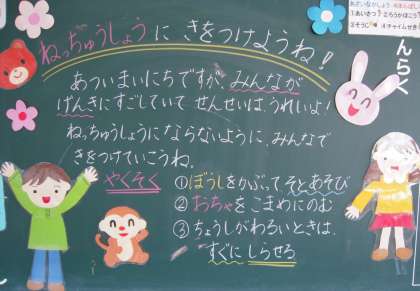 ねっちゅうしょうに きをつけようね!
あついまいにちですが、みんなが
げんきにすごしていて せんせいは うれしいよ!
ねっちゅうしょうにならないように、みんなで
きをつけていこうね。
やくそく
①ぼうしをかぶって そとあそび
②おちゃを こまめにのむ
③ちょうしがわるいときは、
すぐに しらせる
んらく